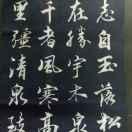 志在千里
自勝者彊
玉宇風清
落木寒泉
松泉高